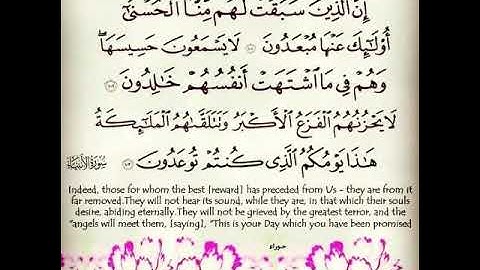 إِنَّ الَّذِينَ سَبَقَتْ لَهُم مِّنَّا الْحُسْنَىٰٓ
أُولَٰٓئِكَ عَنْهَا مُبْعَدُونَ ۝١٠١ لَا يَسْمَعُونَ حَسِيسَهَا ۖ
وَهُمْ فِي مَا اشْتَهَتْ أَنفُسُهُمْ خَالِدُونَ ۝١٠٢
لَا يَحْزُنُهُمُ الْفَزَعُ الْأَكْبَرُ وَتَتَلَقَّاهُمُ الْمَلَٰٓئِكَةُ
هَٰذَا يَوْمُكُمُ الَّذِي كُنتُمْ تُوعَدُونَ ۝١٠٣ سورة الأنبياء
Indeed, those for whom the best [reward] has preceded from Us - they are from it
far removed.They will not hear its sound, while they are, in that which their souls
desire, abiding eternally.They will not be grieved by the greatest terror, and the
"angels will meet them, [saying], "This is your Day which you have been promised
حوراء